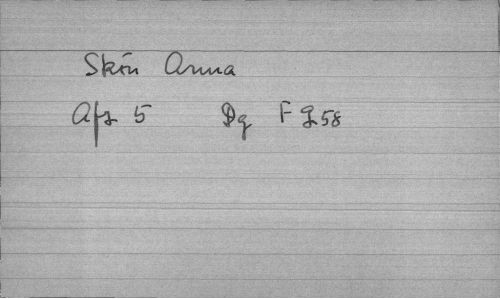 Skön Anna
Afz 5 Dq F g 58